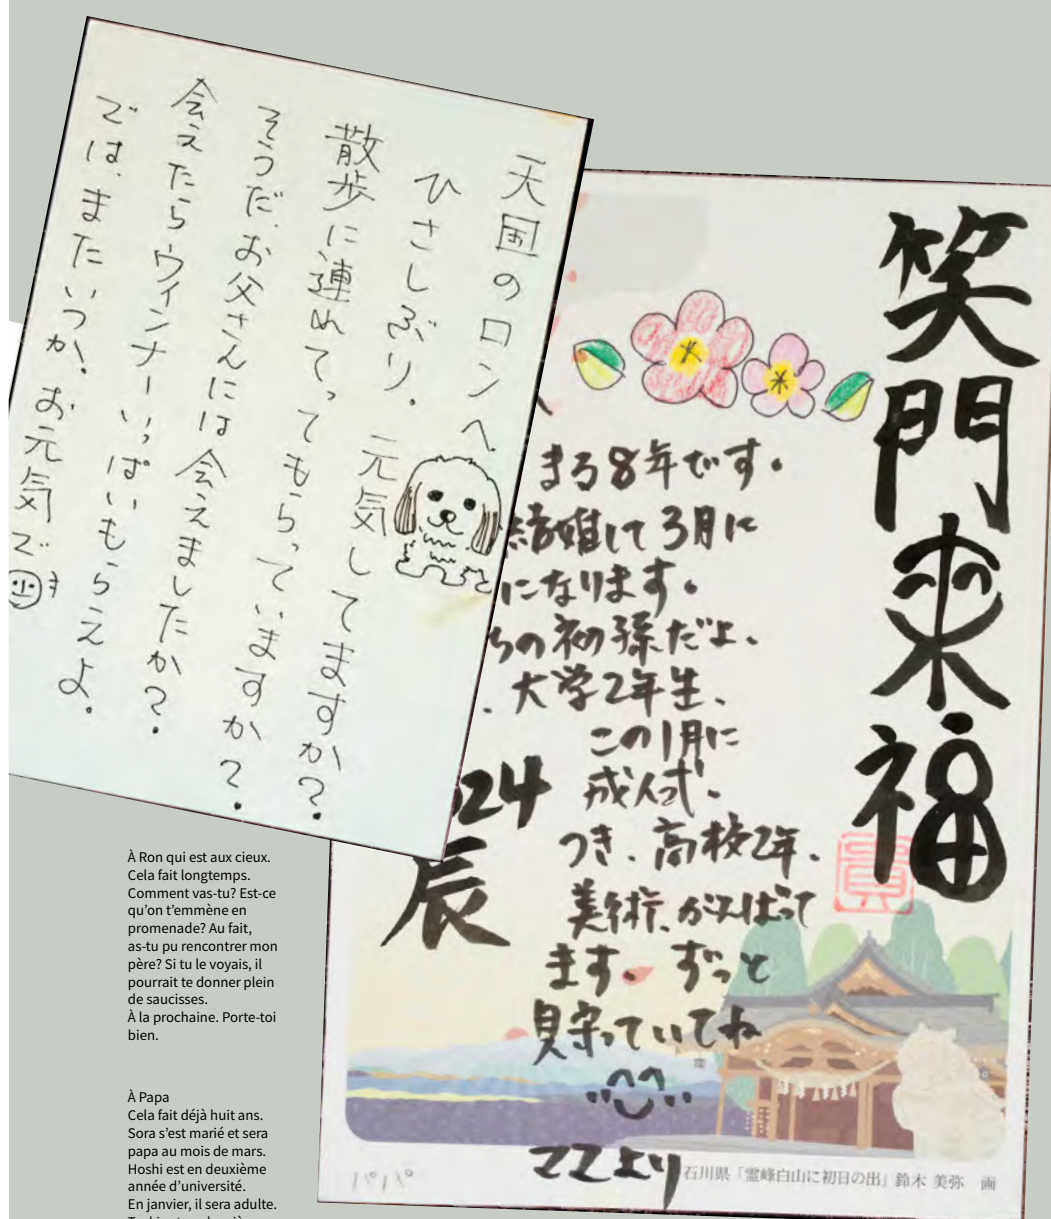 天国のロンへ。
ひさしぶり。元気してますか?
散歩に連れてってもらっていますか?
そうだ、お父さんには会えましたか?
会えたらウィンナーいっぱいもらえよ。
では、またいつか、お元気で
笑門来福
まる8年です。
結婚して3月に
になります。
ちの初孫だよ、
大学2年生、
この1月に
成人式、
つき、高校2年、
美術、がんばって
ます。ずっと
見守っていてね
ママより
24
辰
パパ
石川県「霊峰白山に初日の出」鈴木 美弥 画
À Ron qui est aux cieux.
Cela fait longtemps.
Comment vas-tu? Est-ce
qu'on t'emmène en
promenade? Au fait,
as-tu pu rencontrer mon
père? Si tu le voyais, il
pourrait te donner plein
de saucisses.
À la prochaine. Porte-toi
bien.
À Papa
Cela fait déjà huit ans.
Sora s'est marié et sera
papa au mois de mars.
Hoshi est en deuxième
année d'université.
En janvier, il sera adulte.